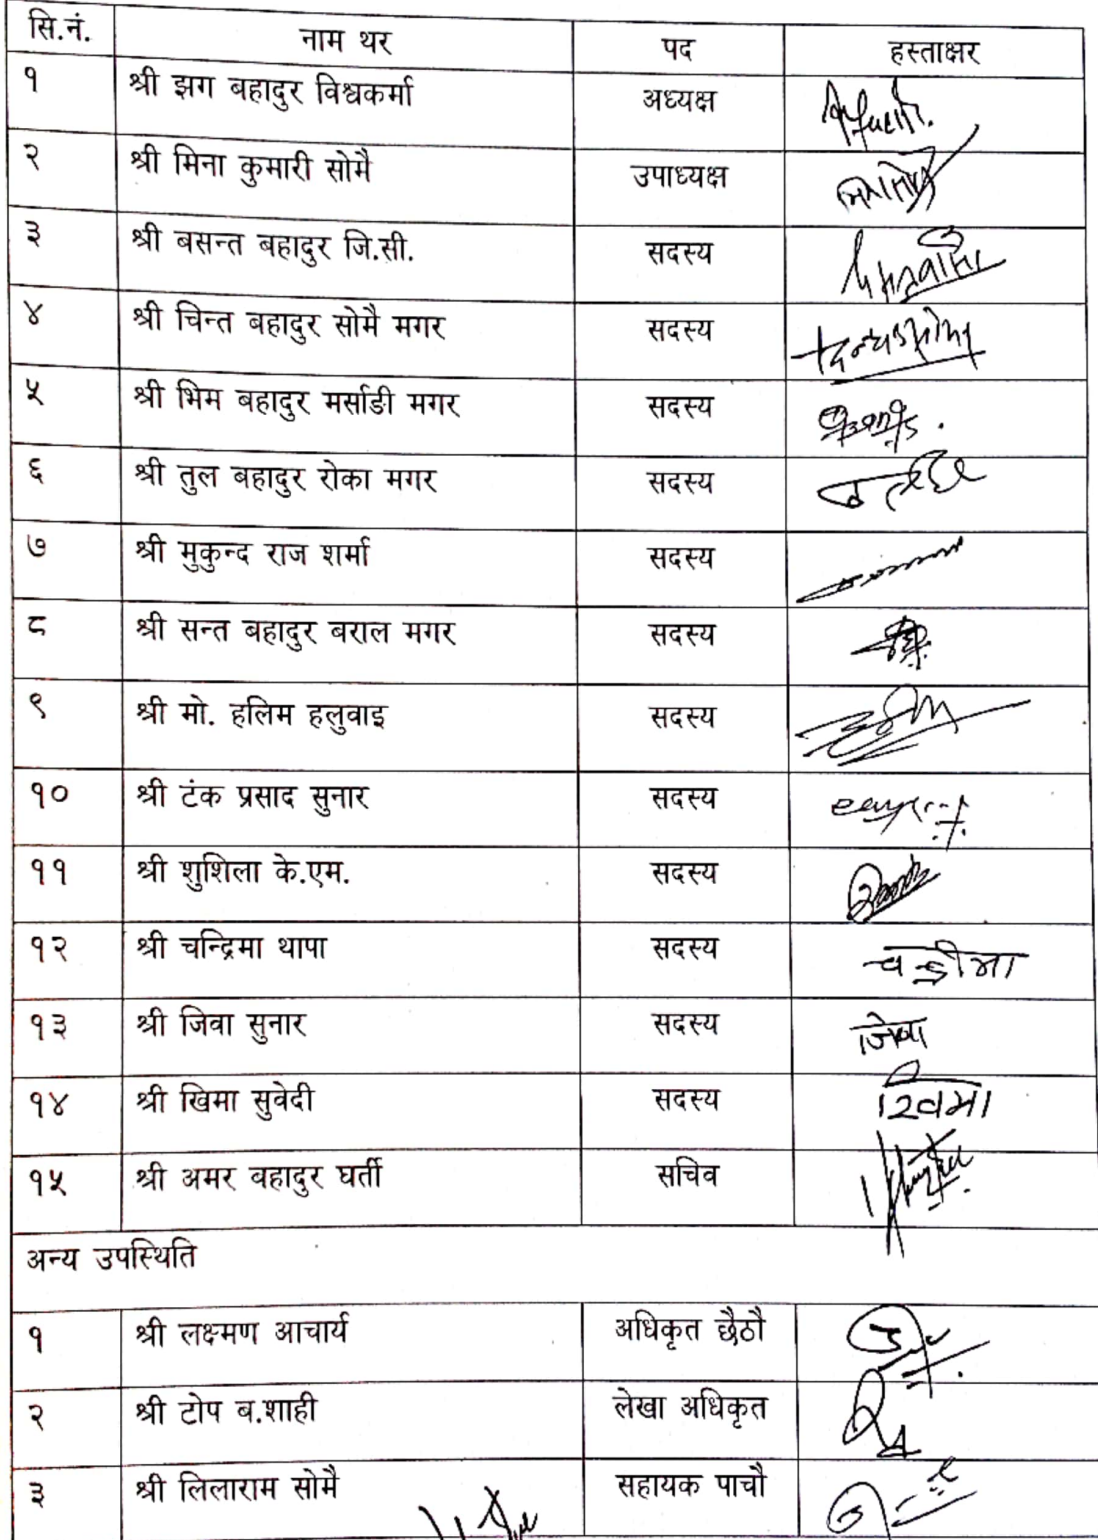 सि.नं. नाम थर पद हस्ताक्षर
१ श्री झग बहादुर विश्वकर्मा अध्यक्ष
२ श्री मिना कुमारी सोमै उपाध्यक्ष
३ श्री बसन्त बहादुर जि.सी. सदस्य
४ श्री चिन्त बहादुर सोमै मगर सदस्य
५ श्री भिम बहादुर मर्साङी मगर सदस्य
६ श्री तुल बहादुर रोका मगर सदस्य
७ श्री मुकुन्द राज शर्मा सदस्य
८ श्री सन्त बहादुर बराल मगर सदस्य
९ श्री मो. हलिम हलुवाइ सदस्य
१० श्री टंक प्रसाद सुनार सदस्य
११ श्री शुशिला के.एम. सदस्य
१२ श्री चन्द्रिमा थापा सदस्य चन्द्रीमा
१३ श्री जिवा सुनार सदस्य जिवा
१४ श्री खिमा सुवेदी सदस्य खिमा
१५ श्री अमर बहादुर घर्ती सचिव
अन्य उपस्थिति
१ श्री लक्ष्मण आचार्य अधिकृत छैठौ
२ श्री टोप ब.शाही लेखा अधिकृत
३ श्री लिलाराम सोमै सहायक पाचौ